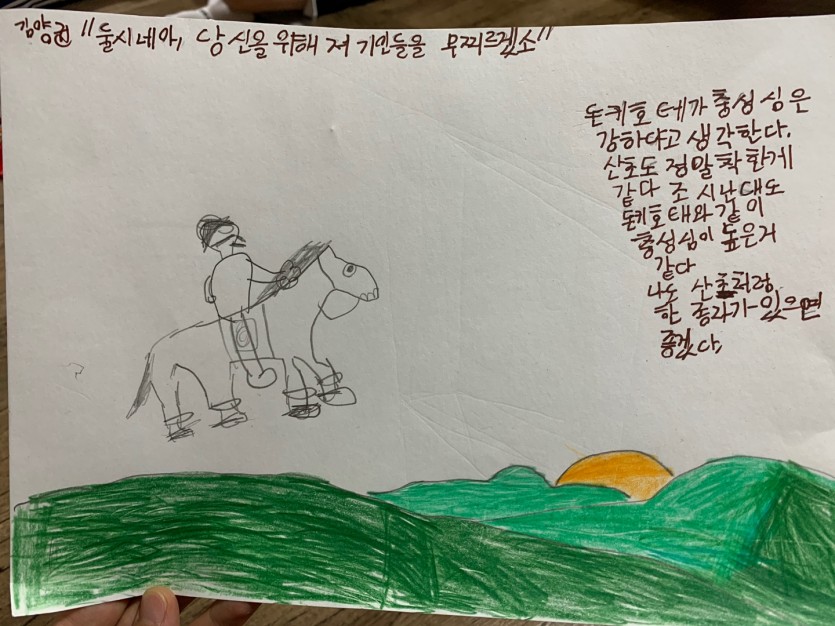 김양권 "둘시네아, 당신을 위해 저 기인들을 무찌르겠소"
돈키호테가 충성심은
강하다고 생각한다.
산초도 정말 착한게
같다 조 시난대도
돈키호태와 같이
충성심이 높은거
같다
나도 산초처럼
한 종라가 있으면
좋겠다.